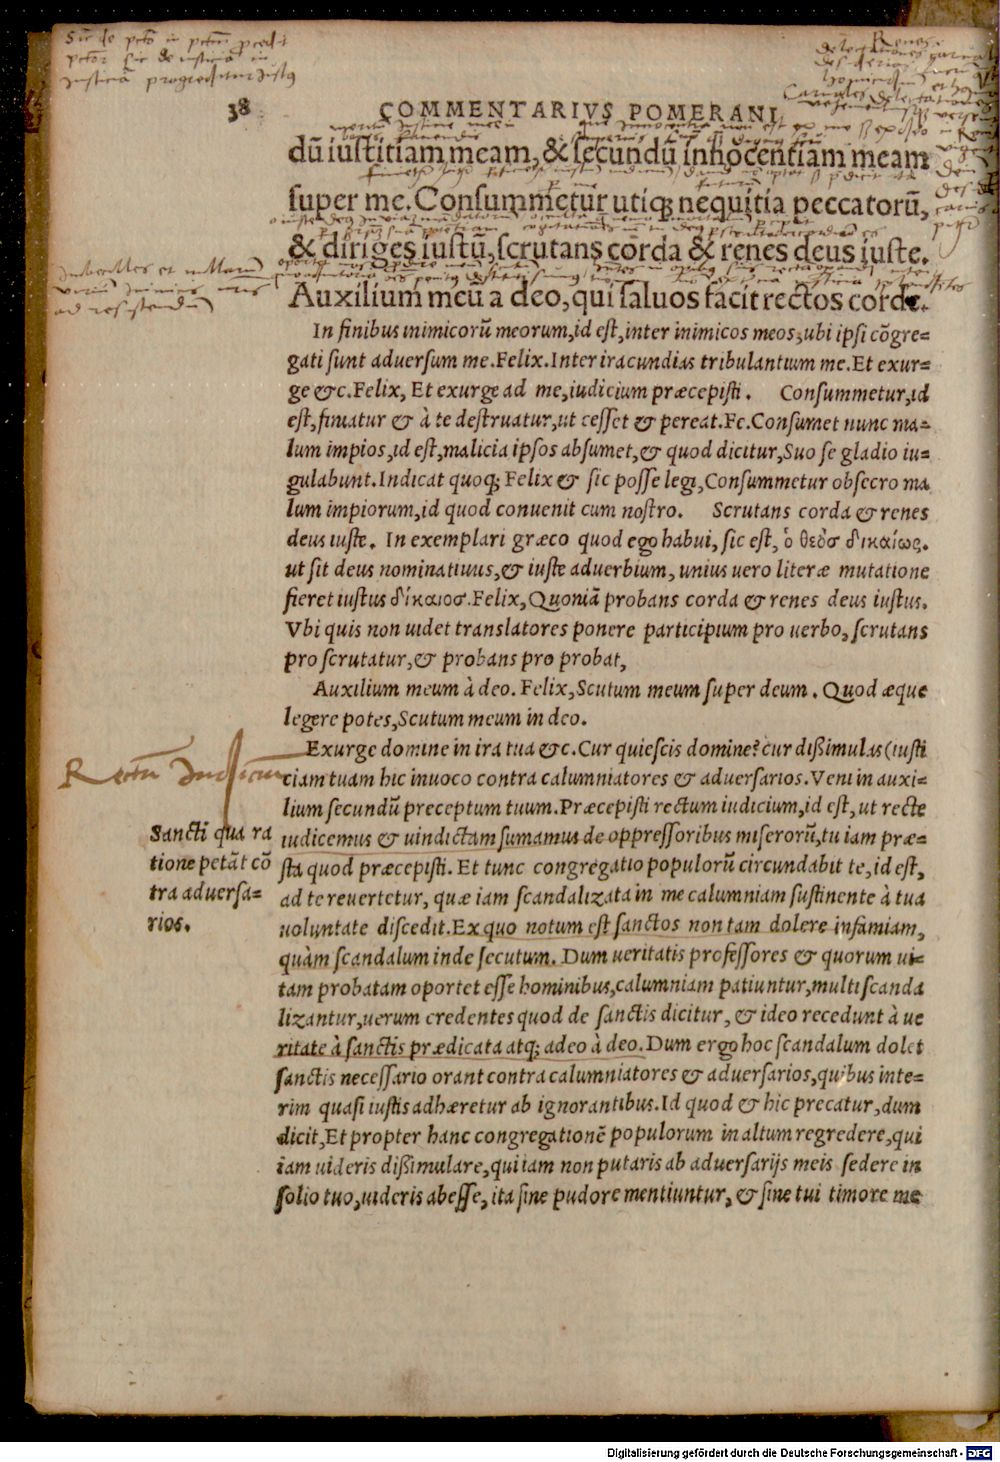 38
COMMENTARIVS POMERANI
dũ iustitiam meam, & secundũ innocentiam meam
super me. Consummetur utiq; nequitia peccatorũ,
& diriges iustũ, scrutans corda & renes deus iuste.
Auxilium meũ a deo, qui saluos facit rectos corde.
In finibus inimicorũ meorum, id est, inter inimicos meos, ubi ipsi cõgre=
gati sunt aduersum me. Felix. Inter iracundias tribulantium me. Et exur=
ge &c. Felix, Et exurge ad me, iudicium præcepisti. Consummetur, id
est, finiatur & à te destruatur, ut cesset & pereat. Fe. Consumet nunc ma=
lum impios, id est, malicia ipsos absumet, & quod dicitur, Suo se gladio iu=
gulabunt. Indicat quoq; Felix & sic posse legi, Consummetur obsecro ma
lum impiorum, id quod conuenit cum nostro. Scrutans corda & renes
deus iuste. In exemplari græco quod ego habui, sic est, ὁ θεὸσ δικαίως.
ut sit deus nominatiuus, & iuste aduerbium, unius uero literæ mutatione
fieret iustus δίκαιοσ. Felix, Quoniã probans corda & renes deus iustus.
Vbi quis non uidet translatores ponere participium pro uerbo, scrutans
pro scrutatur, & probans pro probat,
Auxilium meum à deo. Felix, Scutum meum super deum. Quod æque
legere potes, Scutum meum in deo.
Exurge domine in ira tua &c. Cur quiescis domine? cur dißimulas (iusti
Rectũ Judicium
ciam tuam hic inuoco contra calumniatores & aduersarios. Veni in auxi=
lium secundũ preceptum tuum. Præcepisti rectum iudicium, id est, ut recte
iudicemus & uindictam sumamus de oppressoribus miserorũ, tu iam præ=
sta quod præcepisti. Et tunc congregatio populorũ circundabit te, id est,
ad te reuertetur, quæ iam scandalizata in me calumniam sustinente à tua
uoluntate discedit. Ex quo notum est sanctos non tam dolere infamiam,
Sancti qua ra
tione petãt cõ
tra aduersa=
rios.
quàm scandalum inde secutum. Dum ueritatis professores & quorum ui=
tam probatam oportet esse hominibus, calumniam patiuntur, multi scanda
lizantur, uerum credentes quod de sanctis dicitur, & ideo recedunt à ue
ritate à sanctis prædicata atq; adeo à deo. Dum ergo hoc scandalum dolet
sanctis necessario orant contra calumniatores & aduersarios, quibus inte=
rim quasi iustis adhæretur ab ignorantibus. Id quod & hic precatur, dum
dicit, Et propter hanc congregationẽ populorum in altum regredere, qui
iam uideris dißimulare, qui iam non putaris ab aduersarijs meis sedere in
solio tuo, uideris abesse, ita sine pudore mentiuntur, & sine tui timore me
Digitalisierung gefördert durch die Deutsche Forschungsgemeinschaft - DFG